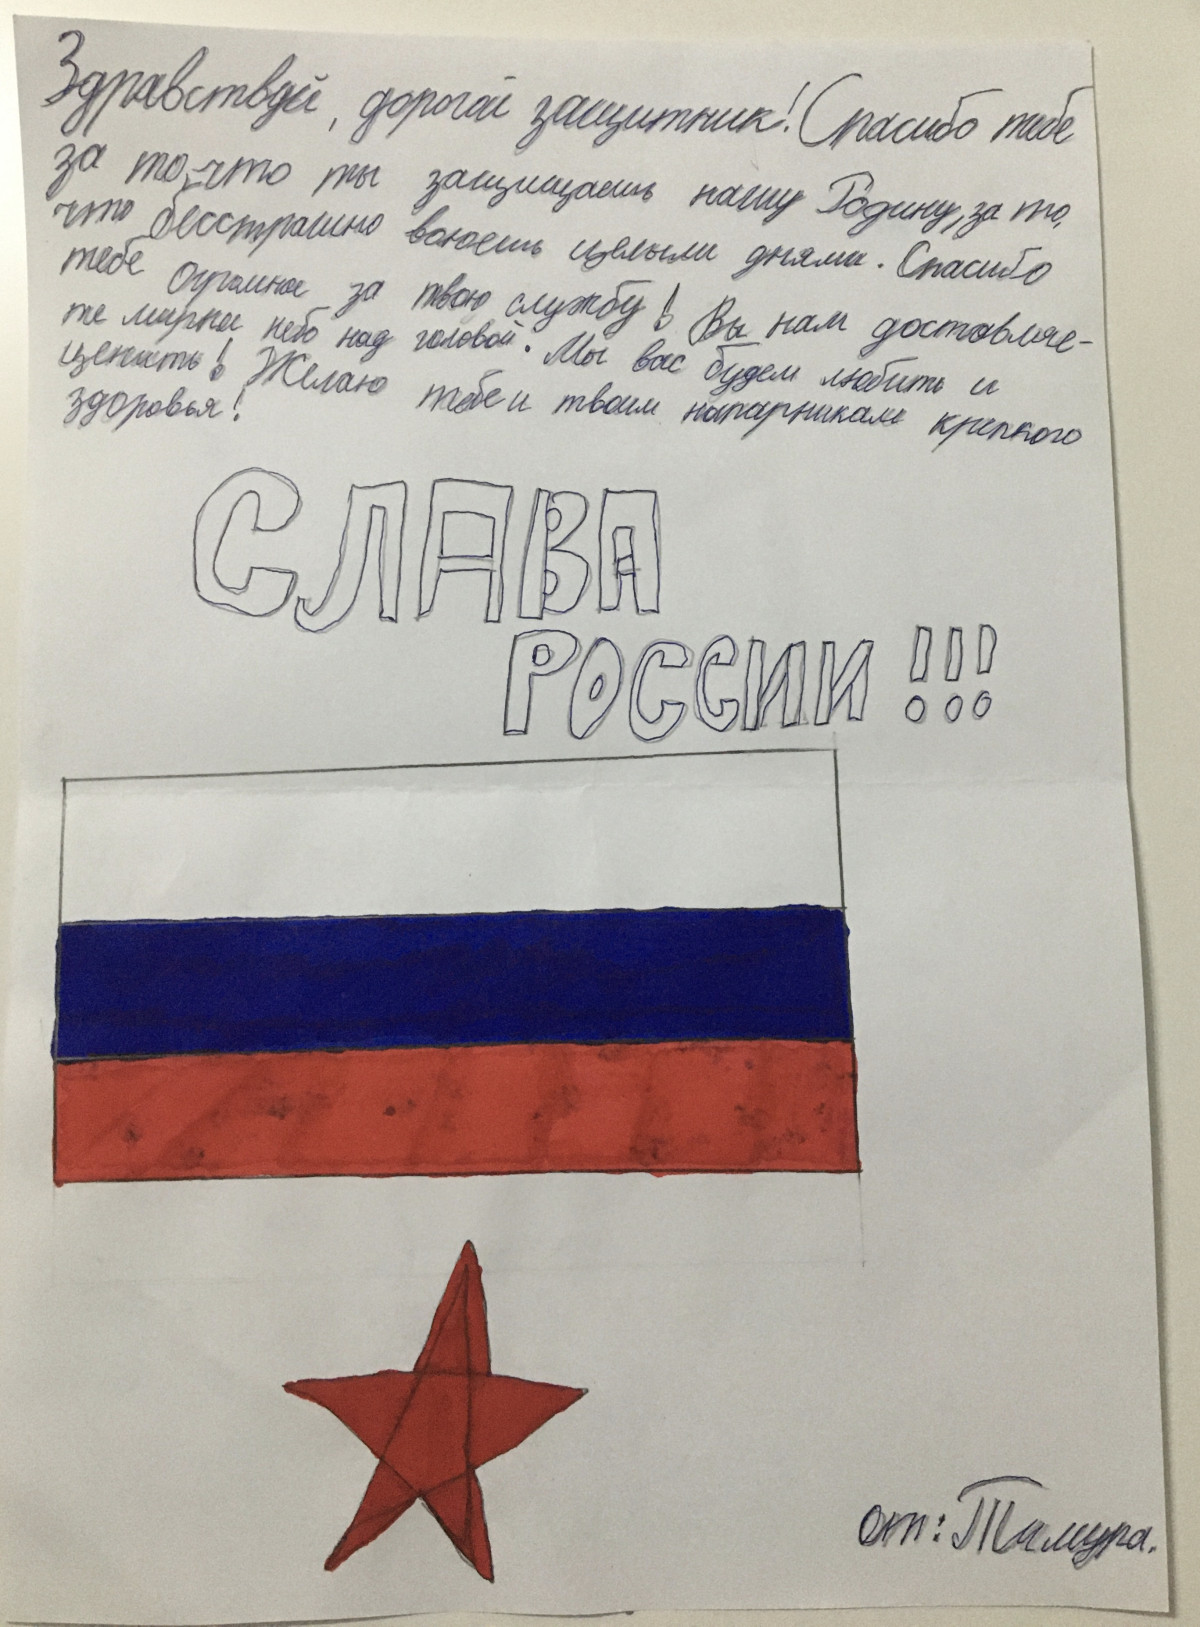 Здравствуй, дорогой защитник! Спасибо тебе
за то, что ты защищаешь нашу Родину, за то,
что бесстрашно воюешь целыми днями. Спасибо
тебе огромное за твою службу! Вы нам доставляе-
те мирное небо над головой. Мы вас будем любить и
ценить! Желаю тебе и твоим напарникам крепкого
здоровья!
СЛАВА
РОССИИ!!!
от: Тимура.